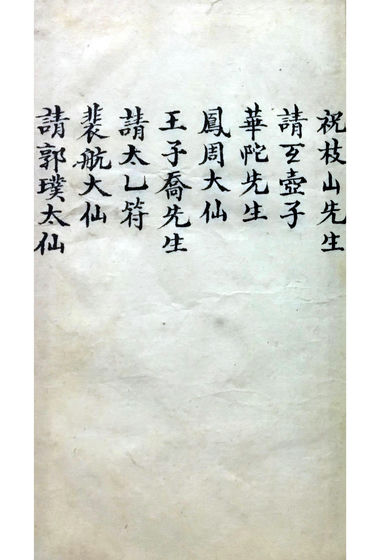 祝枝山先生
請互壺子
華陀先生
鳳周大仙
王子喬先生
請太乚符
裴航大仙
請郭璞太仙